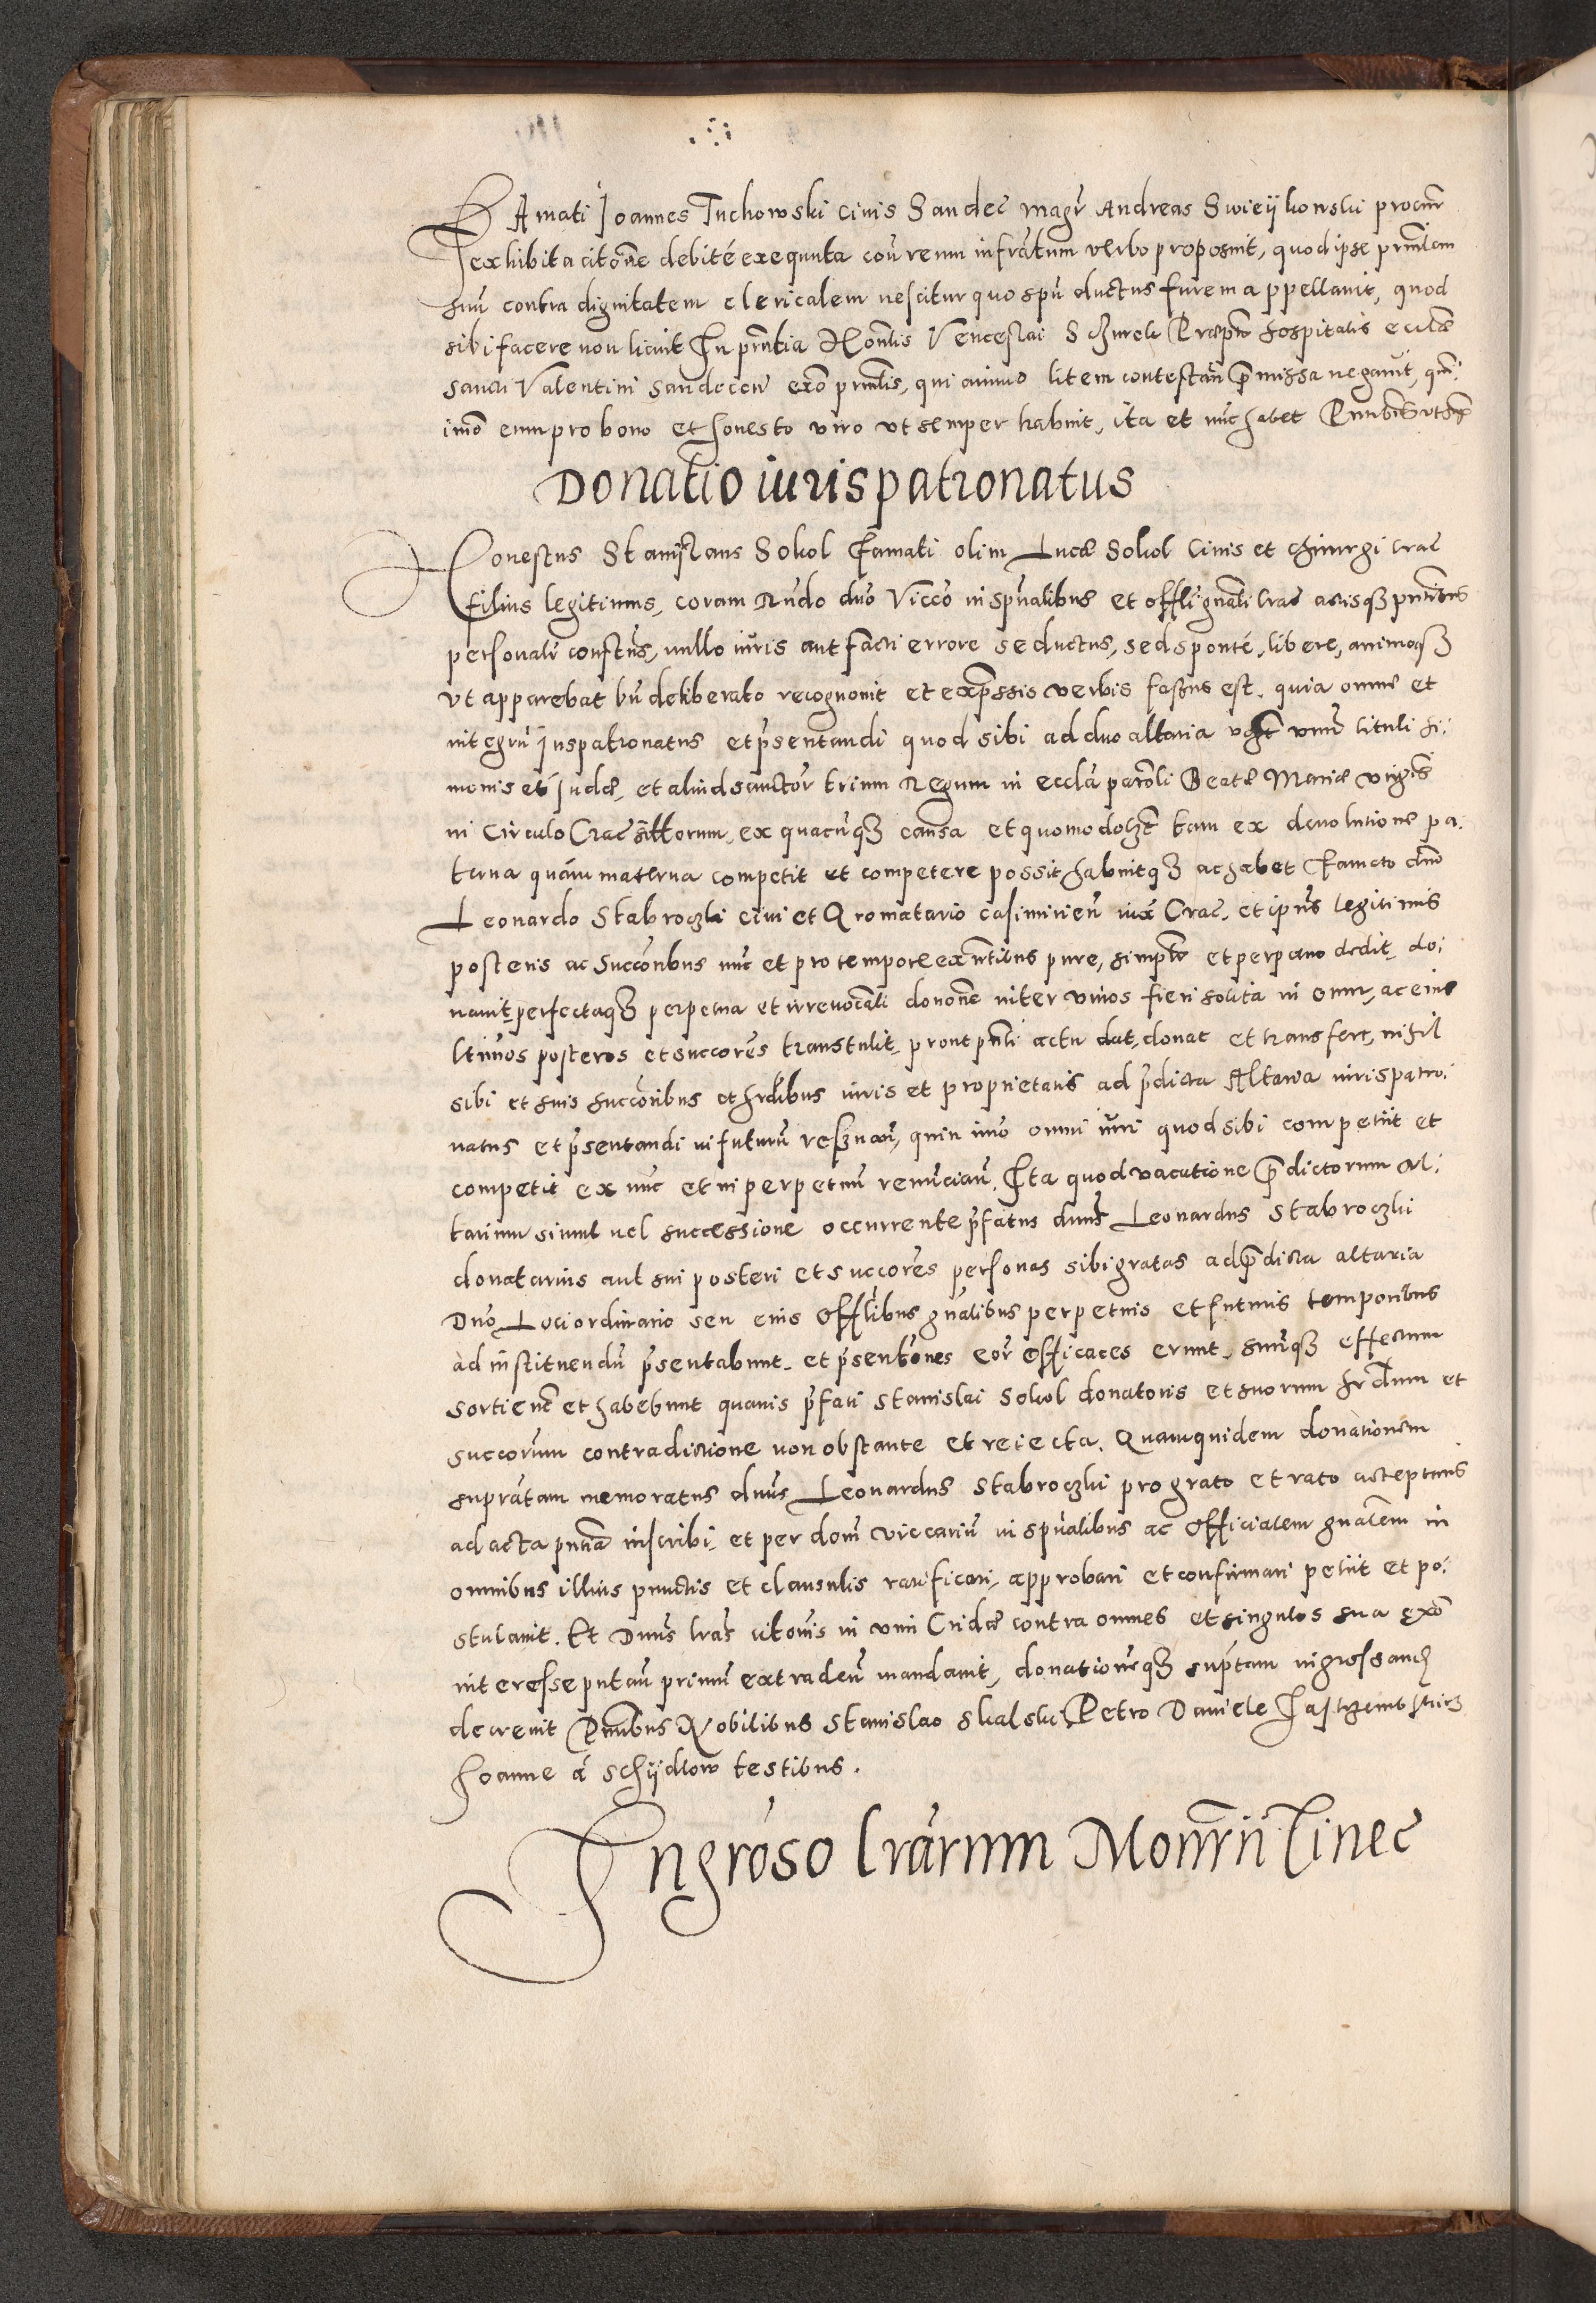 FAmati Joannes Tuchowski civis Sandec magr Andreas Swieijkowski procur
exhibita citone debité exequuta coñ reum infratum verbo proposuit, quod ipse prncipalem
suũ contra dignitatem clericalem nescitur quo spũ ductus furem appellavit, quod
sibi facere non licuit In prntia Hontis Venceslai Schurek Præpto hospitalis ecclæ
sancti Valentini Sandecen exo prncipalis, qui animo litem contestañ præmissa negavit, qui:
imo eum pro bono et honesto viro ut semper habuit, ita et nũc habet
Donatio iuris patronatus
Honestus Stanislaus Sokol Famati olim Lucæ Sokol Civis et chirurgi Crac
filius legitimus, coram Rndo dno Vicco in spũalibus et offli gnali Crac actisq3 pñtibus
personalr constũs, nullo iuris aut facti errore seductus, sed sponté, libere, animoq3
ut apparebat bñ deliberato recognovit et expressis verbis fassus est. quia omne et
integrũ Juspatronatus et p̃sentandi quod sibi ad duo altaria vz unũ tituli Si:
monis et Judæ, et aliud sanctor trium Regum in eccla parochli Beatæ Mariæ virginis
in Circulo Crac sittorum, ex quacũq3 causa et quomodolzt tam ex devolutione pa:
terna quàm materna competit et competere possit habuitq3 ac habet Famato dno
Leonardo Stabroczki civi et Aromatario casimirien iuxᵃ Crac. et ipius legitimis
posteris ac Succoribus nũc et pro tempore exñtibus pure, simplr et perpetuo dedit, do:
navit perfectaq3 perpetua et irrevocabli donone inter vivos fieri solita in eum, ac eius
ltimos posteros et succores transtulit, prout pñti actu dat, donat et transfert, nihil
sibi et suis succoribus et hrdibus iuris et proprietatis ad p̃dicta Altaria iurispatro:
natus et p̃sentandi in futurũ reservañ, quin imo omni iuri quod sibi competiit et
competit ex nũc et in perpetuũ renũciañ. Ita quod vacatione prædictorum Al:
tarium simul vel successione occurrente p̃fatus dnus Leonardus Stabroczki
donatarius aut sui posteri et succores personas sibi gratas ad prædicta altaria
Dno Loci ordinario seu eius Offlibus gñalibus perpetuis et futuris temporibus
ad instituendũ p̃sentabunt, et p̃sentones eor efficaces erunt, suũq3 effectum
sortient et habebunt quavis p̃fati Stanislai Sokol donatoris et suorum hrdum et
succorum contradictione non obstante et reiecta. Quamquidem donationem
supratam memoratus dnus Leonardus Stabroczki pro grato et rato acceptans
ad acta pñtia inscribi, et per dom Viccariũ in spũalibus ac Officialem gñalem in
omnibus illius punctis et clausulis ratificari, approbari et confirmari petiit et po:
stulavit. Et Dnus lras citonis in vim Cridæ contra omnes et singulos sua exo
interesse putañ primũ extradeñ mandavit, donationeq3 suptam ingrossand
decrevit Pñtibus Nobilibus Stanislao Skalski Petro Daniele Jastrzemb
Joanne à Schijdlow testibus.
Ingrosõ lrarum Monrii Tinec